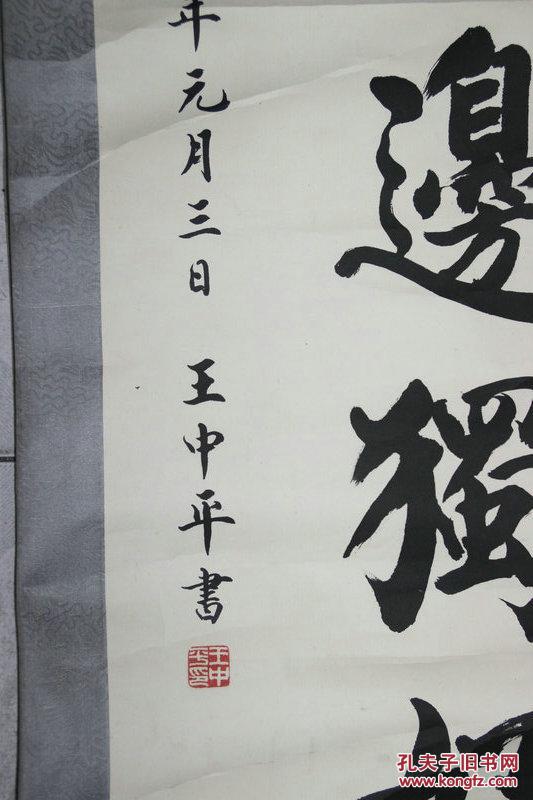 邊獨
年元月三日 王中平書
王中平印
孔夫子旧书网
www.kongfz.com